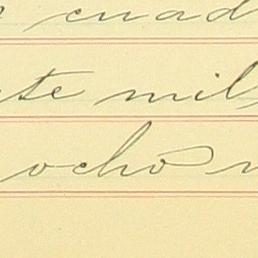 cuad
te mil
ocho